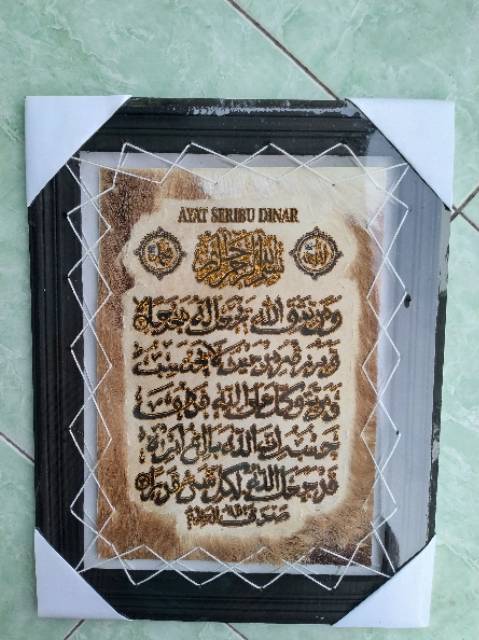 AYAT SERIBU DINAR
بسم الله الرحمن الرحيم
الله
محمد
ومن يتق الله يجعل له مخرجا
ويرزقه من حيث لا يحتسب
ومن يتوكل على الله فهو
حسبه إن الله بالغ أمره
قد جعل الله لكل شيء قدرا
صدق الله العظيم